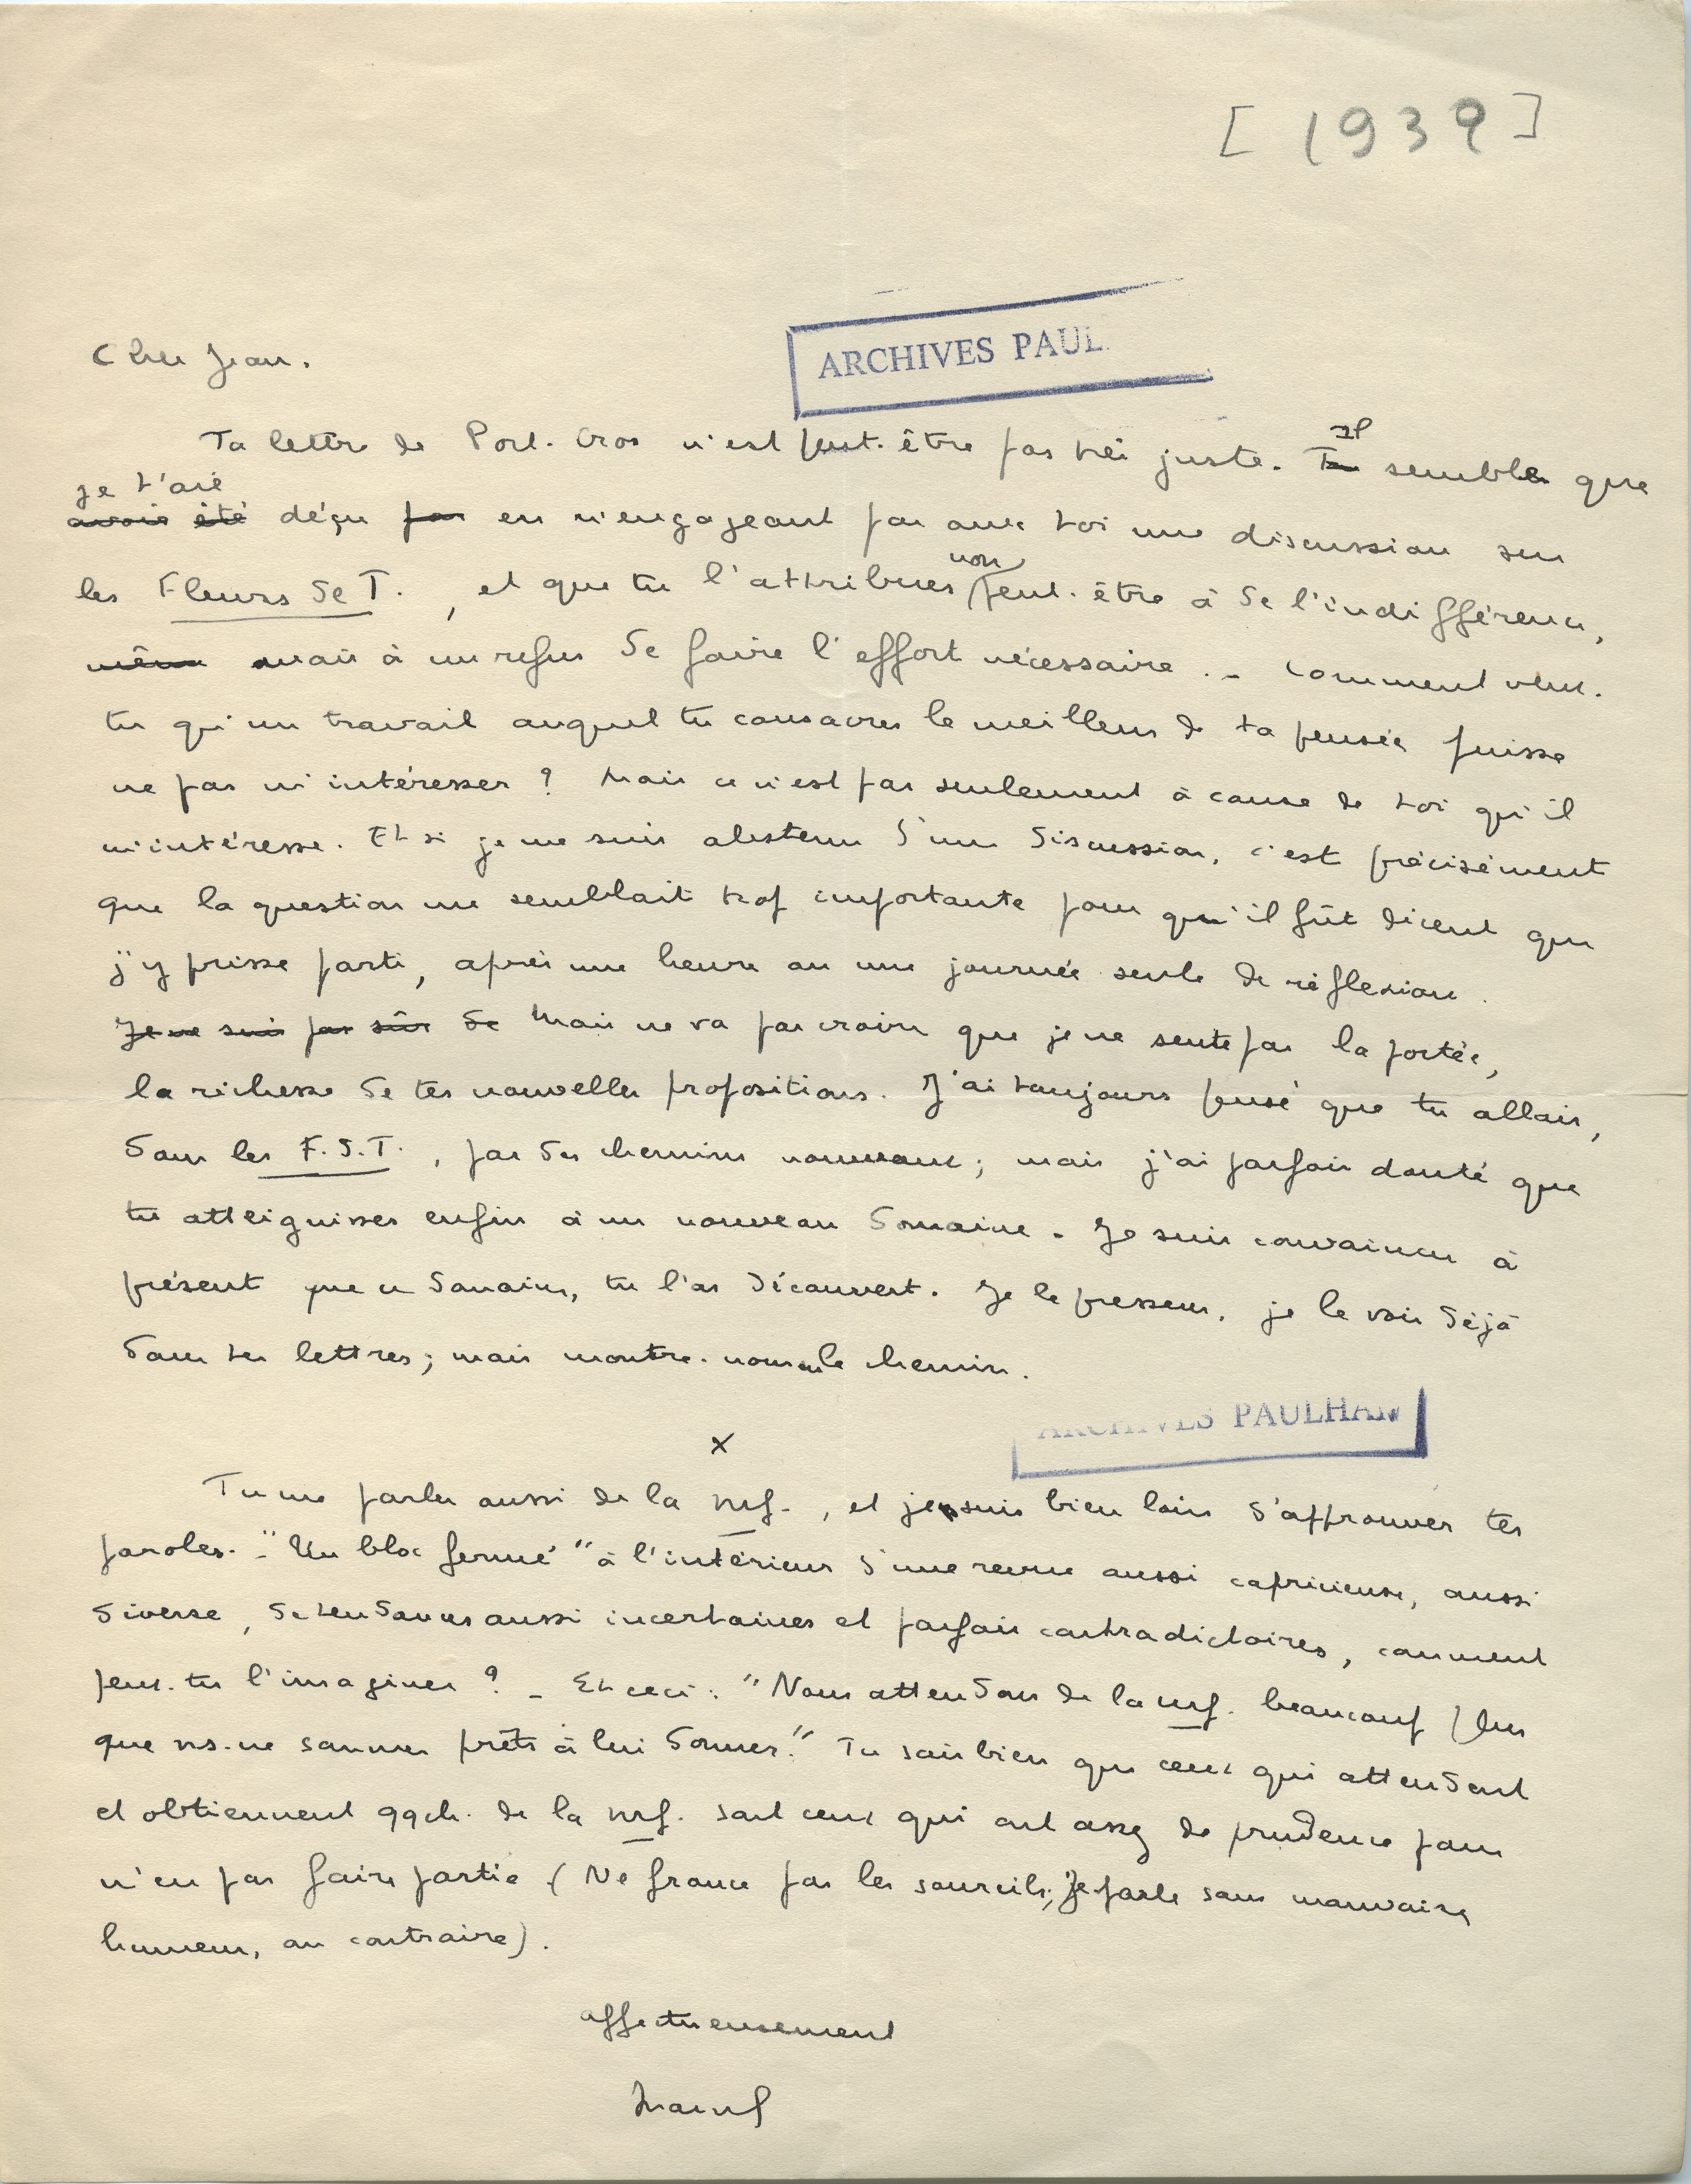 [1939]
ARCHIVES PAUL
Cher Jean.
Ta lettre de Port-Cros n'est peut-être pas très juste. Tu Il semble que
avoir été je t'aie déçu par en n'engageant pas avec toi une discussion sur
les Fleurs de T., et que tu l'attribues non peut-être à de l'indifférence,
même mais à un refus de faire l'effort nécessaire. – Comment veux-
tu qu'un travail auquel tu consacres le meilleur de ta pensée puisse
ne pas m'intéresser ? Mais ce n'est pas seulement à cause de toi qu'il
m'intéresse. Et si je me suis abstenu d'une discussion, c'est précisément
que la question me semblait trop importante pour qu'il fût décent que
j'y prisse parti, après une heure ou une journée seule de réflexion.
Je ne suis pas sûr de Mais ne va pas croire que je ne sente pas la portée,
la richesse de tes nouvelles propositions. J'ai toujours pensé que tu allais,
dans les F.d.T., par des chemins nouveaux ; mais j'ai parfois douté que
tu atteignisses enfin à un nouveau domaine. Je suis convaincu à
présent que ce domaine, tu l'as découvert. Je le pressens, je le vois déjà
dans tes lettres ; mais montre-nous le chemin.
ARCHIVES PAULHAN
x
Tu me parles aussi de la nrf., et je suis bien loin d'approuver tes
paroles. – "Un bloc fermé" à l'intérieur d'une revue aussi capricieuse, aussi
diverse, de tendances aussi incertaines et parfois contradictoires, comment
peux-tu l'imaginer ? – Et ceci : "Nous attendons de la nrf. beaucoup plus
que ns. ne sommes prêts à lui donner." Tu sais bien que ceux qui attendent
et obtiennent qqch. de la nrf. sont ceux qui ont assez de prudence pour
n'en pas faire partie (Ne fronce pas les sourcils ; je parle sans mauvaise
humeur, au contraire).
affectueusement
Marcel